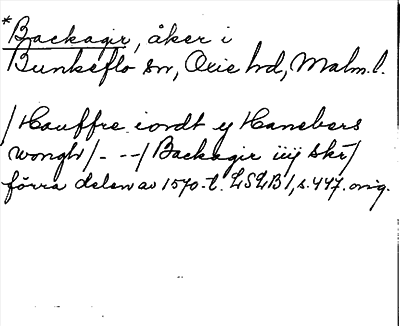 *Backagir, åker i
Bunkeflo sn, Oxie hd, Malm. l.
/Hauffre iordt ij Hanebers
wongh/- --/Backagir iiij skr/
förra delen av 1570-t. LSLB 1, s. 447. orig.